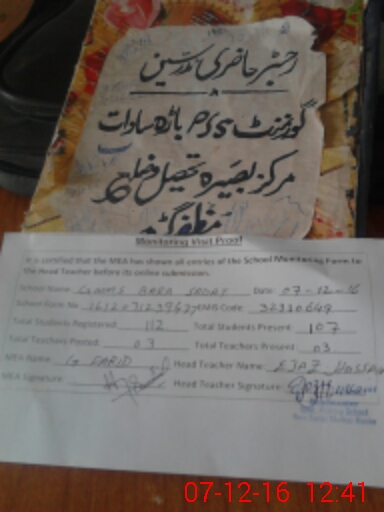 رجسٹر حاضری مدرسین
گورنمنٹ سی ڈم باڑہ سادات
مرکز بصیرہ تحصیل ضلع
مظفرگڑھ
Monitoring Visit Proof
It is certified that the MEA has shown all entries of the School Monitoring Form to
the Head Teacher before its online submission.
School Name: BARA Date: 07-12-16
School Form No EMIS Code: 32310649
Total Students Registered: 112 Total Students Present: 107
Total Teachers Posted: 03 Total Teachers Present: 03
MEA Name: G FARID Head Teacher Name: EJAZ HUSSAIN
MEA Signature: Head Teacher Signature:
07-12-16 12:41